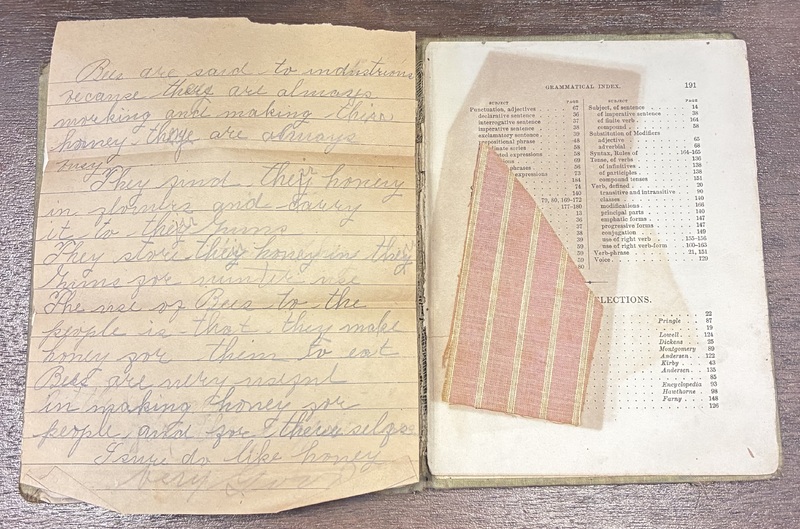 Bees are said to industrious
because there are always
working and making thier
honey there are always
They
They find their honey
in flowers and carry
it to their hums
They stort their honey in their
hums for winter use
The use of Bees to the
people is that they make
honey for them to eat
Bees are very
in making honey for
people and for themselfs
I sure do like honey
very
GRAMMATICAL INDEX.
191
SUBJECT PAGE
Punctuation, adjectives 67
declarative sentence 36
interrogative sentence 37
imperative sentence 38
exclamatory sentence 39
expositional phrase 48
series 58
expressions 68
phrases 55
expressions 23
184
74
140
79, 80, 169-172
177-180
13
36
37
38
39
59
80
SUBJECT PAGE
Subject, of sentence 14
of imperative sentence 38
of finite verb 164
compound 58
Substitution of Modifiers
adjective 65
adverbial 68
Syntax, Rules of 164-165
Tense, of verbs 136
of infinitives 138
of participles 138
compound tenses 151
Verb, defined 20
transitive and intransitive 90
classes 140
modifications 166
principal parts 140
emphatic forms 147
progressive forms 147
conjugation 149
use of right verb 155-156
use of right verb-form 160-163
Verb-phrase 21, 151
Voice 129
LECTIONS.
22
Pringle 87
19
Lowell 124
Dickens 25
Montgomery 89
Andersen 122
Kirby 43
Andersen 135
85
Encyclopedia 93
Hawthorne 98
Farny 148
126